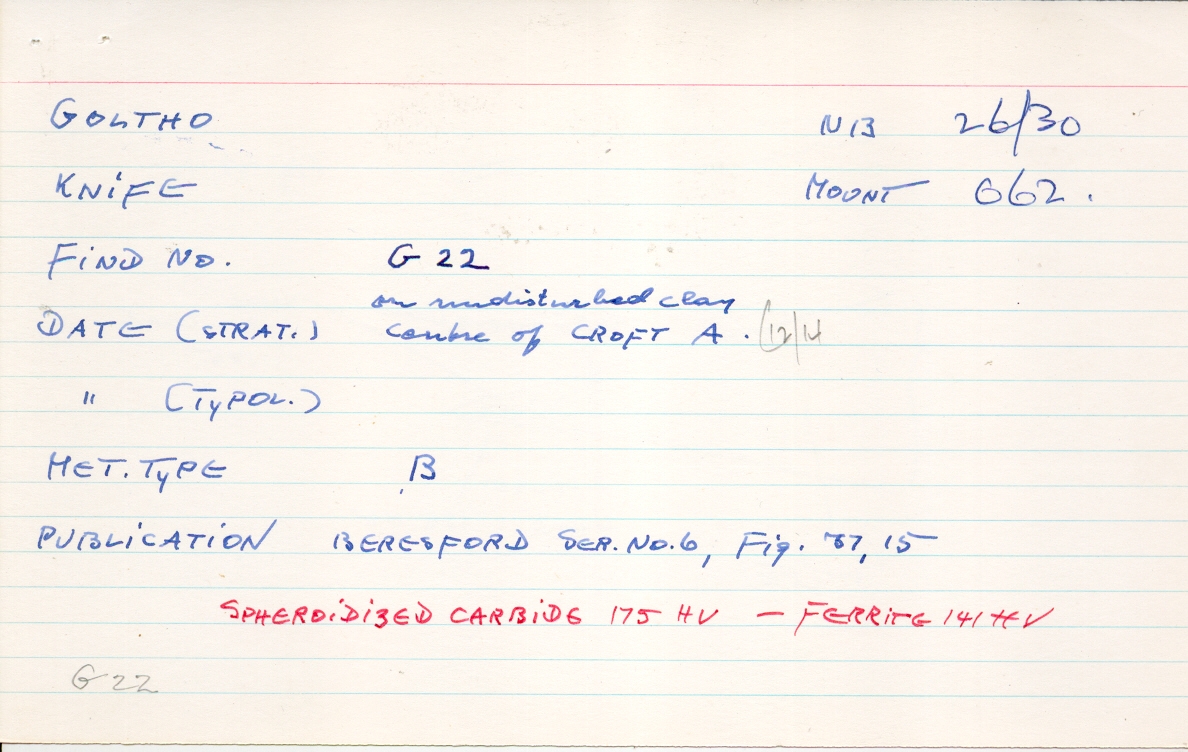 GOLTHO N13 26/30
KNIFE MOUNT 662.
FIND NO. G 22
on undisturbed clay
DATE (STRAT.) centre of CROFT A. (12/14
" (TYPOL.)
MET. TYPE B
PUBLICATION BERESFORD SER. NO. 6, Fig. 37, 15
SPHEROIDIZED CARBIDE 175 HV — FERRITE 141 HV
G 22